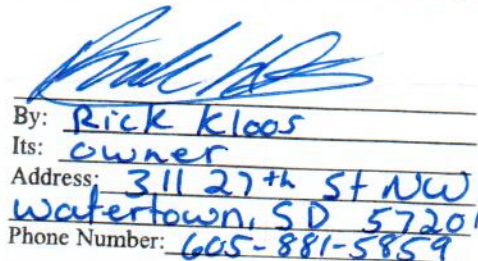 By: Rick Kloos
Its: owner
Address: 311 27th St NW
Watertown, SD 57201
Phone Number: 605-881-5859